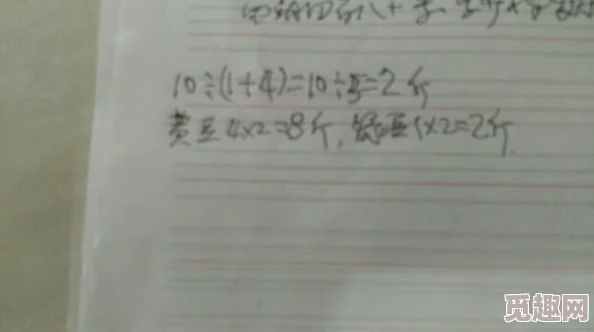 10÷(1+4)=10÷5=2斤
黄豆4×2=8斤,绿豆1×2=2斤
觅趣网